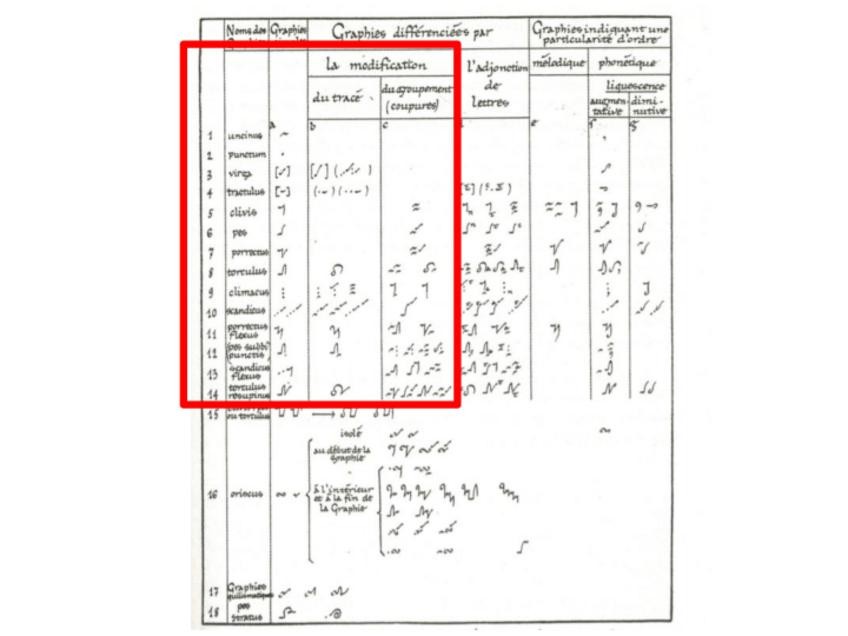 Noms des Graphies Graphies différenciées par Graphies indiquant une
particularité d'ordre
la modification l'adjonction mélodique phonétique
du tracé du groupement de liquescence
(coupures) lettres augmen- dimi-
tative nutive
a b c e f g
1 uncinus
2 punctum
3 virga
4 tractulus
5 clivis
6 pes
7 porrectus
8 torculus
9 climacus
10 scandicus
11 porrectus
flexus
12 (pes subbi
punctis)
13 scandicus
flexus
14 torculus
resupinus
15 ou torculus
isolé
au début de la
Graphie
16 oriscus à l'intérieur
et à la fin de
la Graphie
17 Graphies
quilismatiques
18 pes
stratus